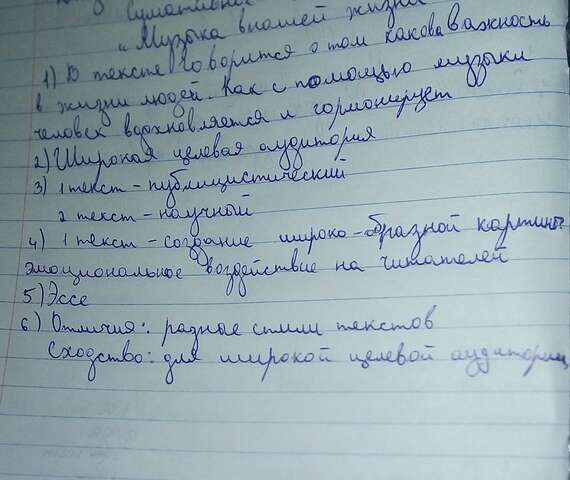 Сумативно
"Музыка в нашей жизни
1) В тексте говорится о том какова важность
в жизни людей. Как с помощью музыки
человек вдохновляется и гормонирует
2) Широкая целевая аудитория
3) 1 текст - публицистический
2 текст - научной
4) 1 текст - создание широко-образной картины.
эмоциональное воздействие на читателей
5) Эссе
6) Отличия: разные стили текстов
Сходство: для широкой целевой аудитории